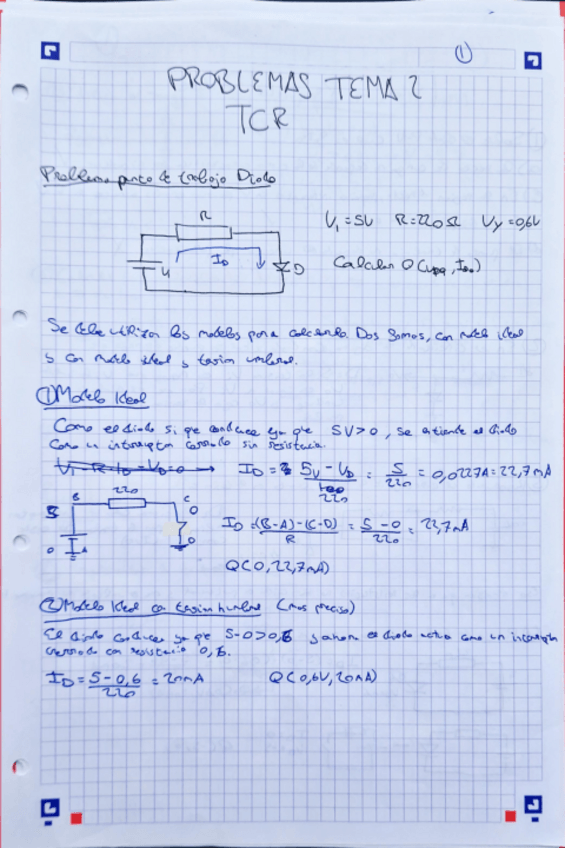 ①
PROBLEMAS TEMA 2
TCR
Problema punto de trabajo Diodo
R
V₁ = 5V R = 220Ω Vγ = 0,6V
I_D
D
Calcular Q
Se debe utilizar los modelos para calcularlo. Dos formas, con modelo ideal
y con modelo ideal y tensión umbral.
① Modelo Ideal
Como el diodo si que conduce ya que 5V>0, se entiende el diodo
como un interruptor cerrado sin resistencia.
I_D = 5V - V_D / 220 = 5 / 220 = 0,0227A = 22,7mA
220
B C
5 0
I_D = (B-A)-(C-D) / R = 5-0 / 220 = 22,7mA
0 A D
Q(0, 22,7mA)
② Modelo Ideal con tension humbral (mas preciso)
El diodo conduce ya que 5-0>0,6 y ahora el diodo actua como un interruptor
cerrado con resistencia 0,6.
I_D = 5-0,6 / 220 = 20mA Q(0,6V, 20mA)